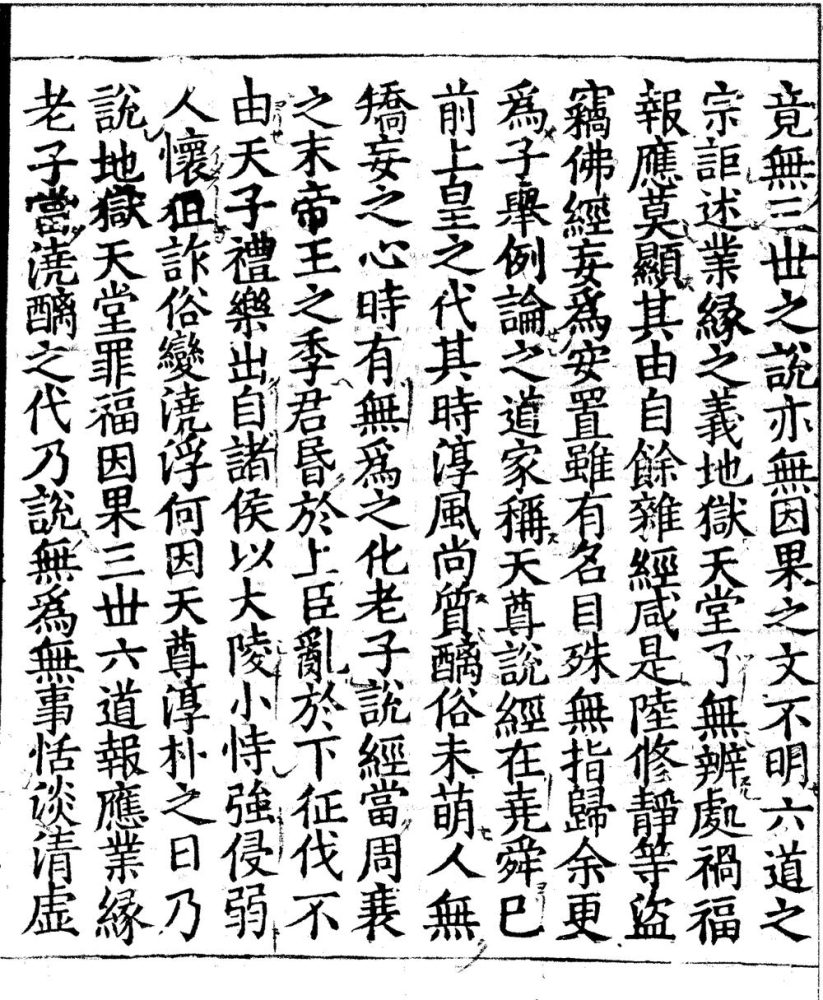 竟無三世之說亦無因果之文不明六道之
宗詎述業緣之義地獄天堂了無辨處禍福
報應莫顯其由自餘雜經咸是陸修靜等盜
竊佛經妄爲安置雖有名目殊無指歸余更
爲子舉例論之道家稱天尊說經在堯舜巳
前上皇之代其時淳風尚質醨俗未萌人無
矯妄之心時有無爲之化老子說經當周衰
之末帝王之季君昬於上臣亂於下征伐不
由天子禮樂出自諸侯以大陵小恃強侵弱
人懷狙詐俗變澆浮何因天尊淳朴之日乃
說地獄天堂罪福因果三世六道報應業緣
老子當澆醨之代乃說無爲無事恬淡清虛